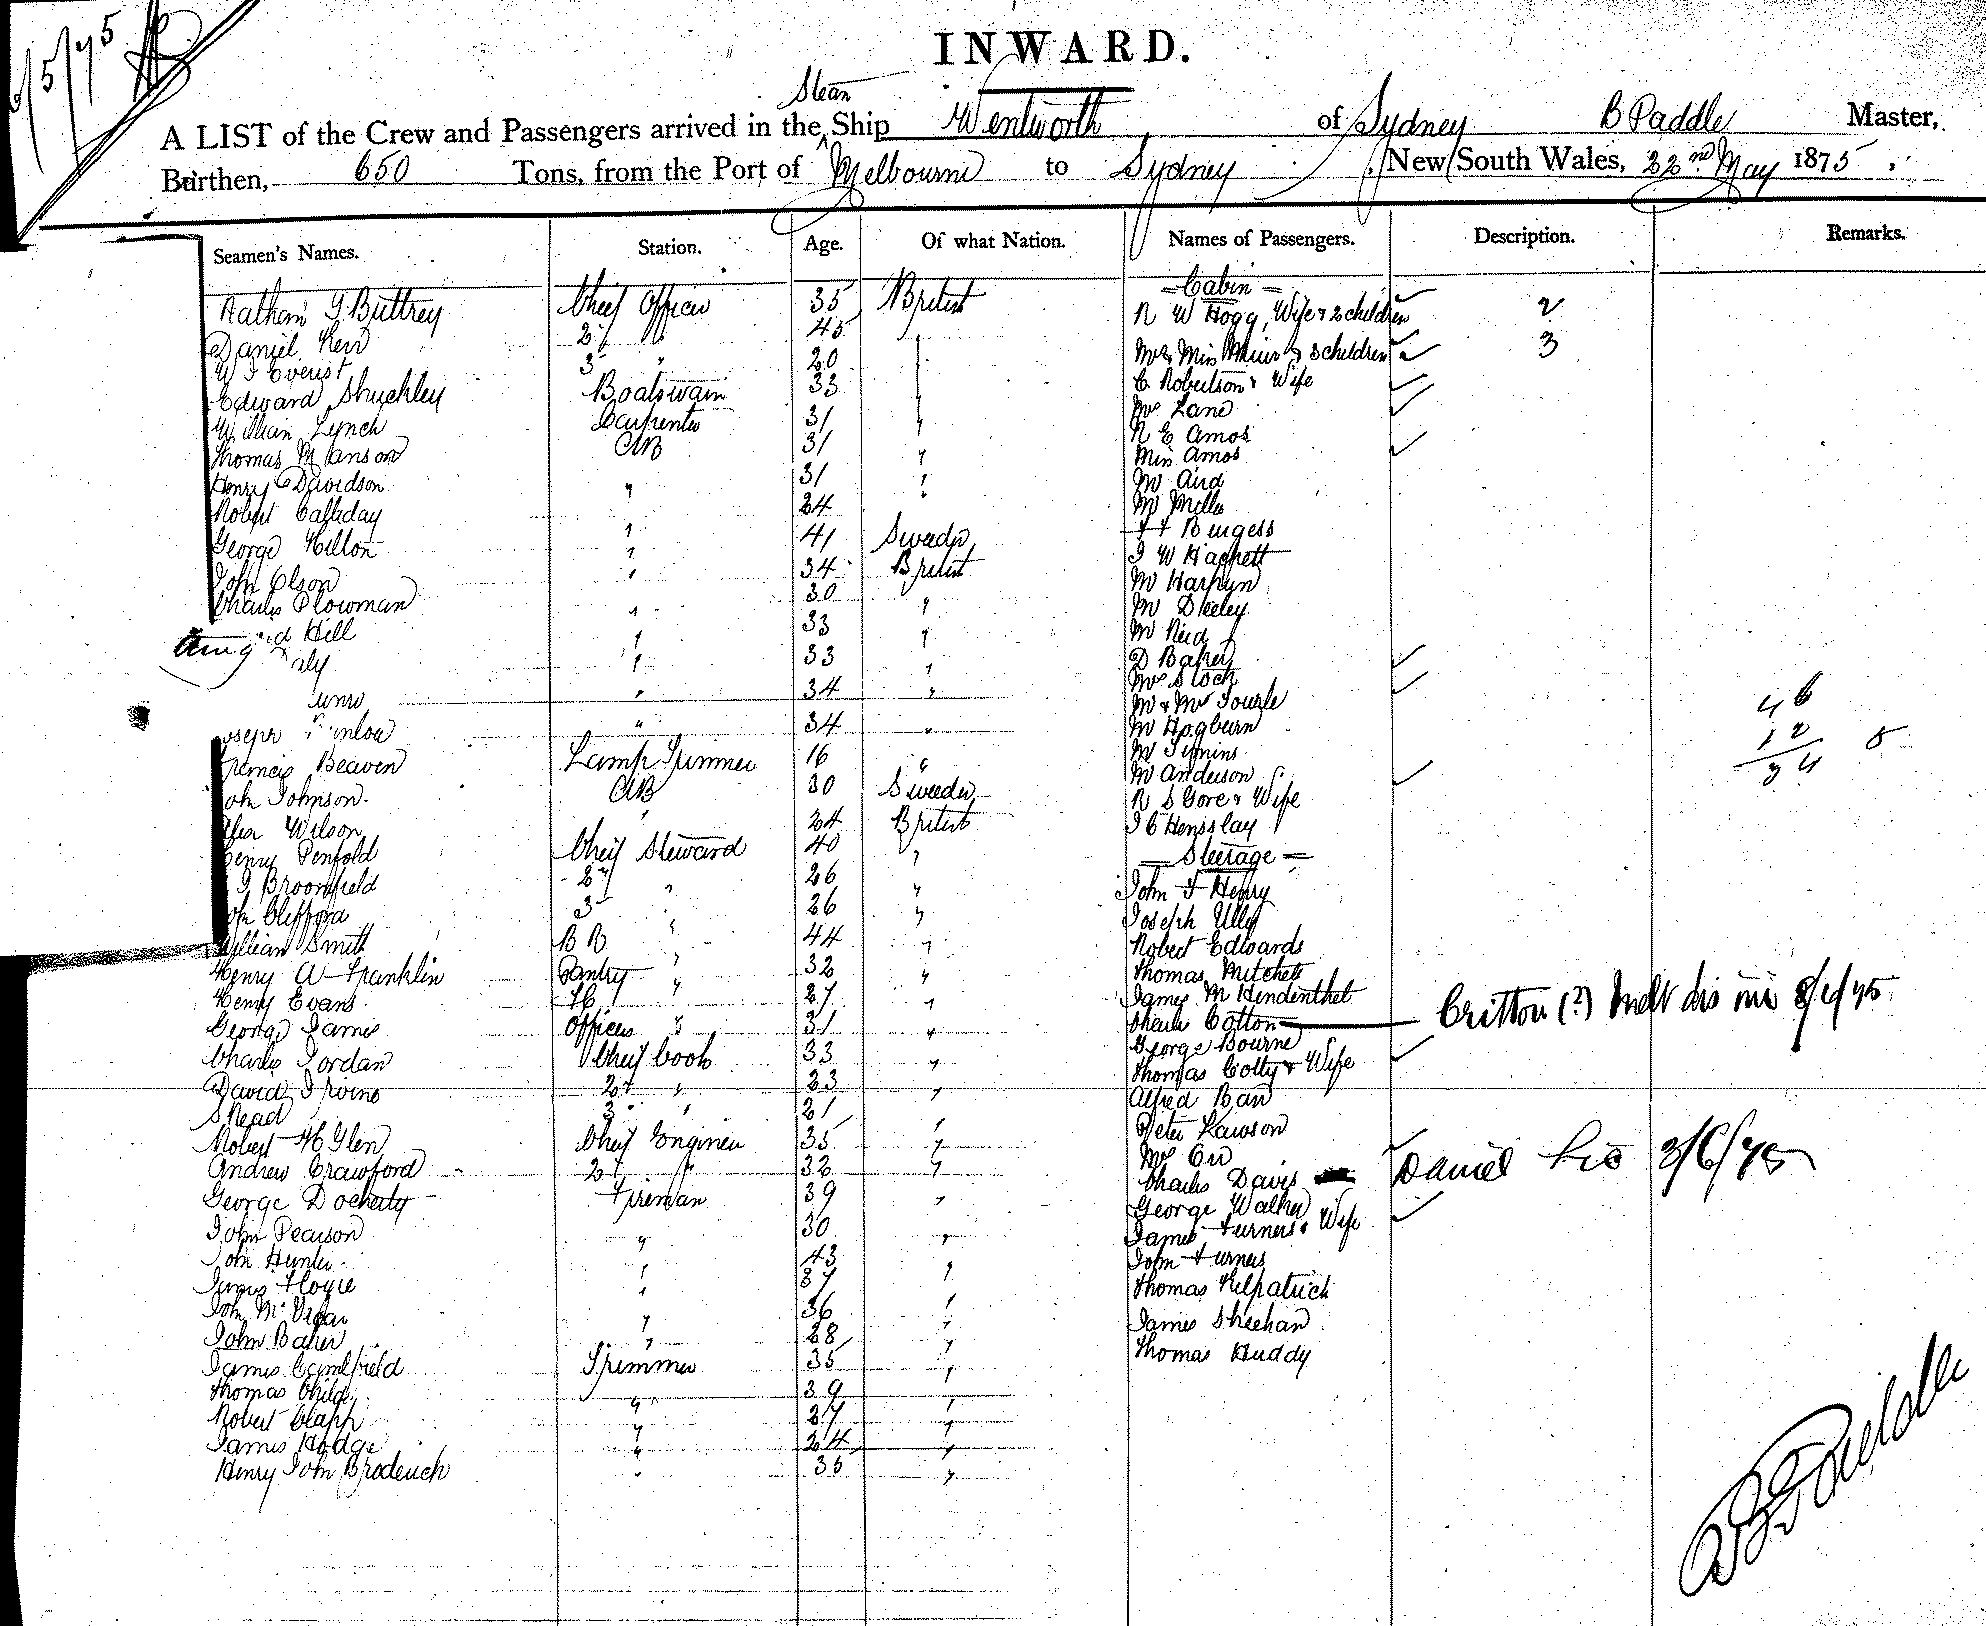 INWARD.
A LIST of the Crew and Passengers arrived in the Steam Ship Wentworth of Sydney B Paddle Master,
Burthen, 650 Tons, from the Port of Melbourne to Sydney New South Wales, 22nd May 1875
Seamen's Names. Station. Age. Of what Nation. Names of Passengers. Description. Remarks.
= Cabin =
Nathan G Buttrey Chief Officer 35 British R W Hogg, Wife & 2 children 2
Daniel Keir 2d " 45 Mrs, Miss Muir & 3 children 3
W J Everist 3 " 20 C Robertson & Wife
Edward Shuckley Boatswain 33 Mrs Lane
William Lynch Carpenter 31 " R E Amos
Thomas Manson AB 31 " Miss Amos
Henry Davidson " 31 " Mr Aird
Robert Calleday " 24 " Mr Miller
George Hilton " 41 Sweden Burgess
John Olson " 34 British J W Hackett
Charles Plowman " 30 " Mr Harpyn
Hill " 33 " Mr Deeley
" 33 " Mr Reid
" 34 " D Baker
Joseph " 34 " Mrs Stock
Francis Beaven Lamp Trimmer 16 " Mr & Mrs Tourle
John Johnson AB 30 Sweden Mr Hogburn
Alex Wilson " 24 British Mr Timmins
Henry Penfold Chief Steward 40 " Mr Anderson
J Broomfield 2d " 26 " R S Gore & Wife
John Clifford 3 " 26 " J C Hensslay
= Steerage =
William Smith BR " 44 " John F Henry
Henry A Franklin Pantry " 32 " Joseph Ully
Henry Evans FC " 27 " Robert Edwards
George James Officers " 31 " Thomas Mitchell
Charles Jordan Chief Cook 33 " James M Hendenthel
David Irvine 2d " 23 " Charles Cotton Critton (?) Melb dis 8/6/75
S Read 3 " 21 George Bourne
Robert H Glen Chief Engineer 35 " Thomas Colty & Wife
Andrew Crawford 2d " 32 " Alfred Ban
George Docherty Fireman 39 " Peter Rawson
John Pearson " 30 " Mrs Orr
John Hunter " 43 " Charles Davis Daniel 3/6/75
James Hoyle " 37 " George Walker
John McVicar " 36 " James Turner & Wife
John Baker " 28 " John Turner
James Camlfield Trimmer 35 " Thomas Kilpatrick
Thomas Childs " 39 " James Sheehan
Robert Clapp " 27 " Thomas Huddy
James Hodge " 24 "
Henry John Broderick " 35 "
46
12 5
34
B Paddle